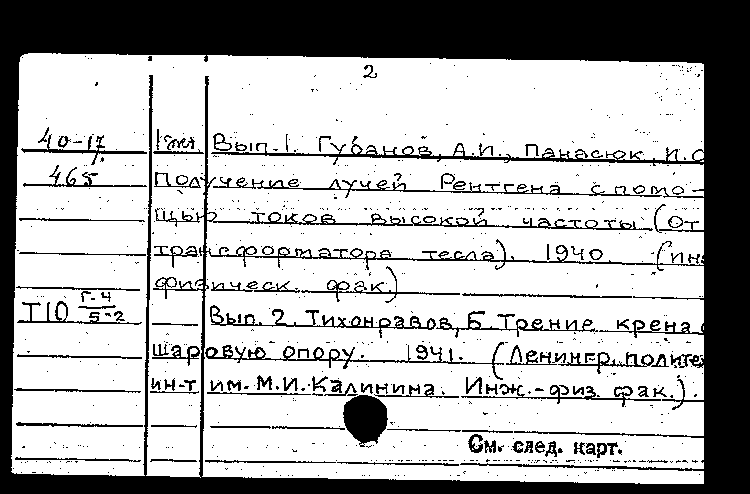 2
40-17 1экз. Вып. 1. Губанов, А.И., Панасюк, И.О
465 Получение лучей Рентгена с помо-
щью токов высокой частоты (От
трансформатора тесла). 1940. (инж
физическ. фак.)
Т10 Г-4/5-2 Вып. 2. Тихонравов, Б. Трение крена о
шаровую опору. 1941. (Ленингр. политех
ин-т им. М.И. Калинина. Инж.-физ. фак.).
См. след. карт.